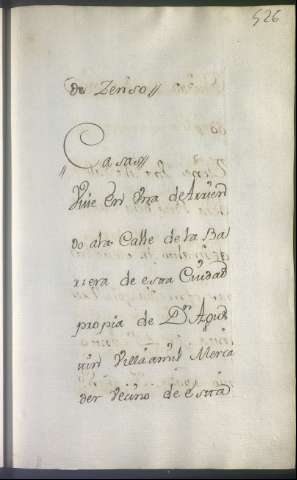 526
de Zenso//
Casas//
Vive En Una de Arrien
do a la Calle de la Ba
rrera de esta Ciudad
propia de Dn Agus
tin Villaamil Merca
der Vecino de esta